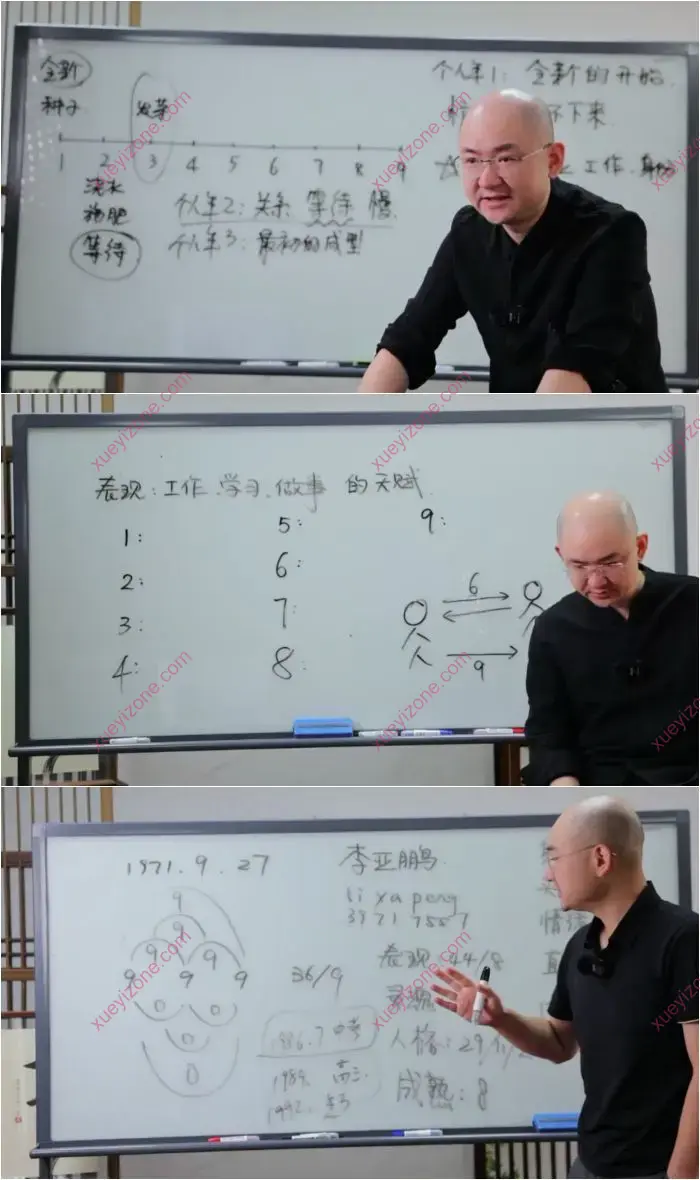 全新
个人年1: 全新的开始
种子
发芽
1 2 3 4 5 6 7 8 9
工作.
浇水
施肥
等待
个人年2: 关系 等待 慢
个人年3: 最初的成型
xueyizone.com
xueyizone.com
xueyizone.com
表现: 工作.学习.做事 的天赋
1: 5: 9:
2: 6:
3: 7:
4: 8:
6
9
xueyizone.com
xueyizone.com
xueyizone.com
1971.9.27
李亚鹏
li ya peng
39 71 7557
9
9
9 9
9 9 9
0 0
0
0
36/9
表现 44/8
灵魂
情绪
1986.7 中考
1989. 高三
1992.
人格: 29/11/2
成熟: 8
xueyizone.com
xueyizone.com
xueyizone.com